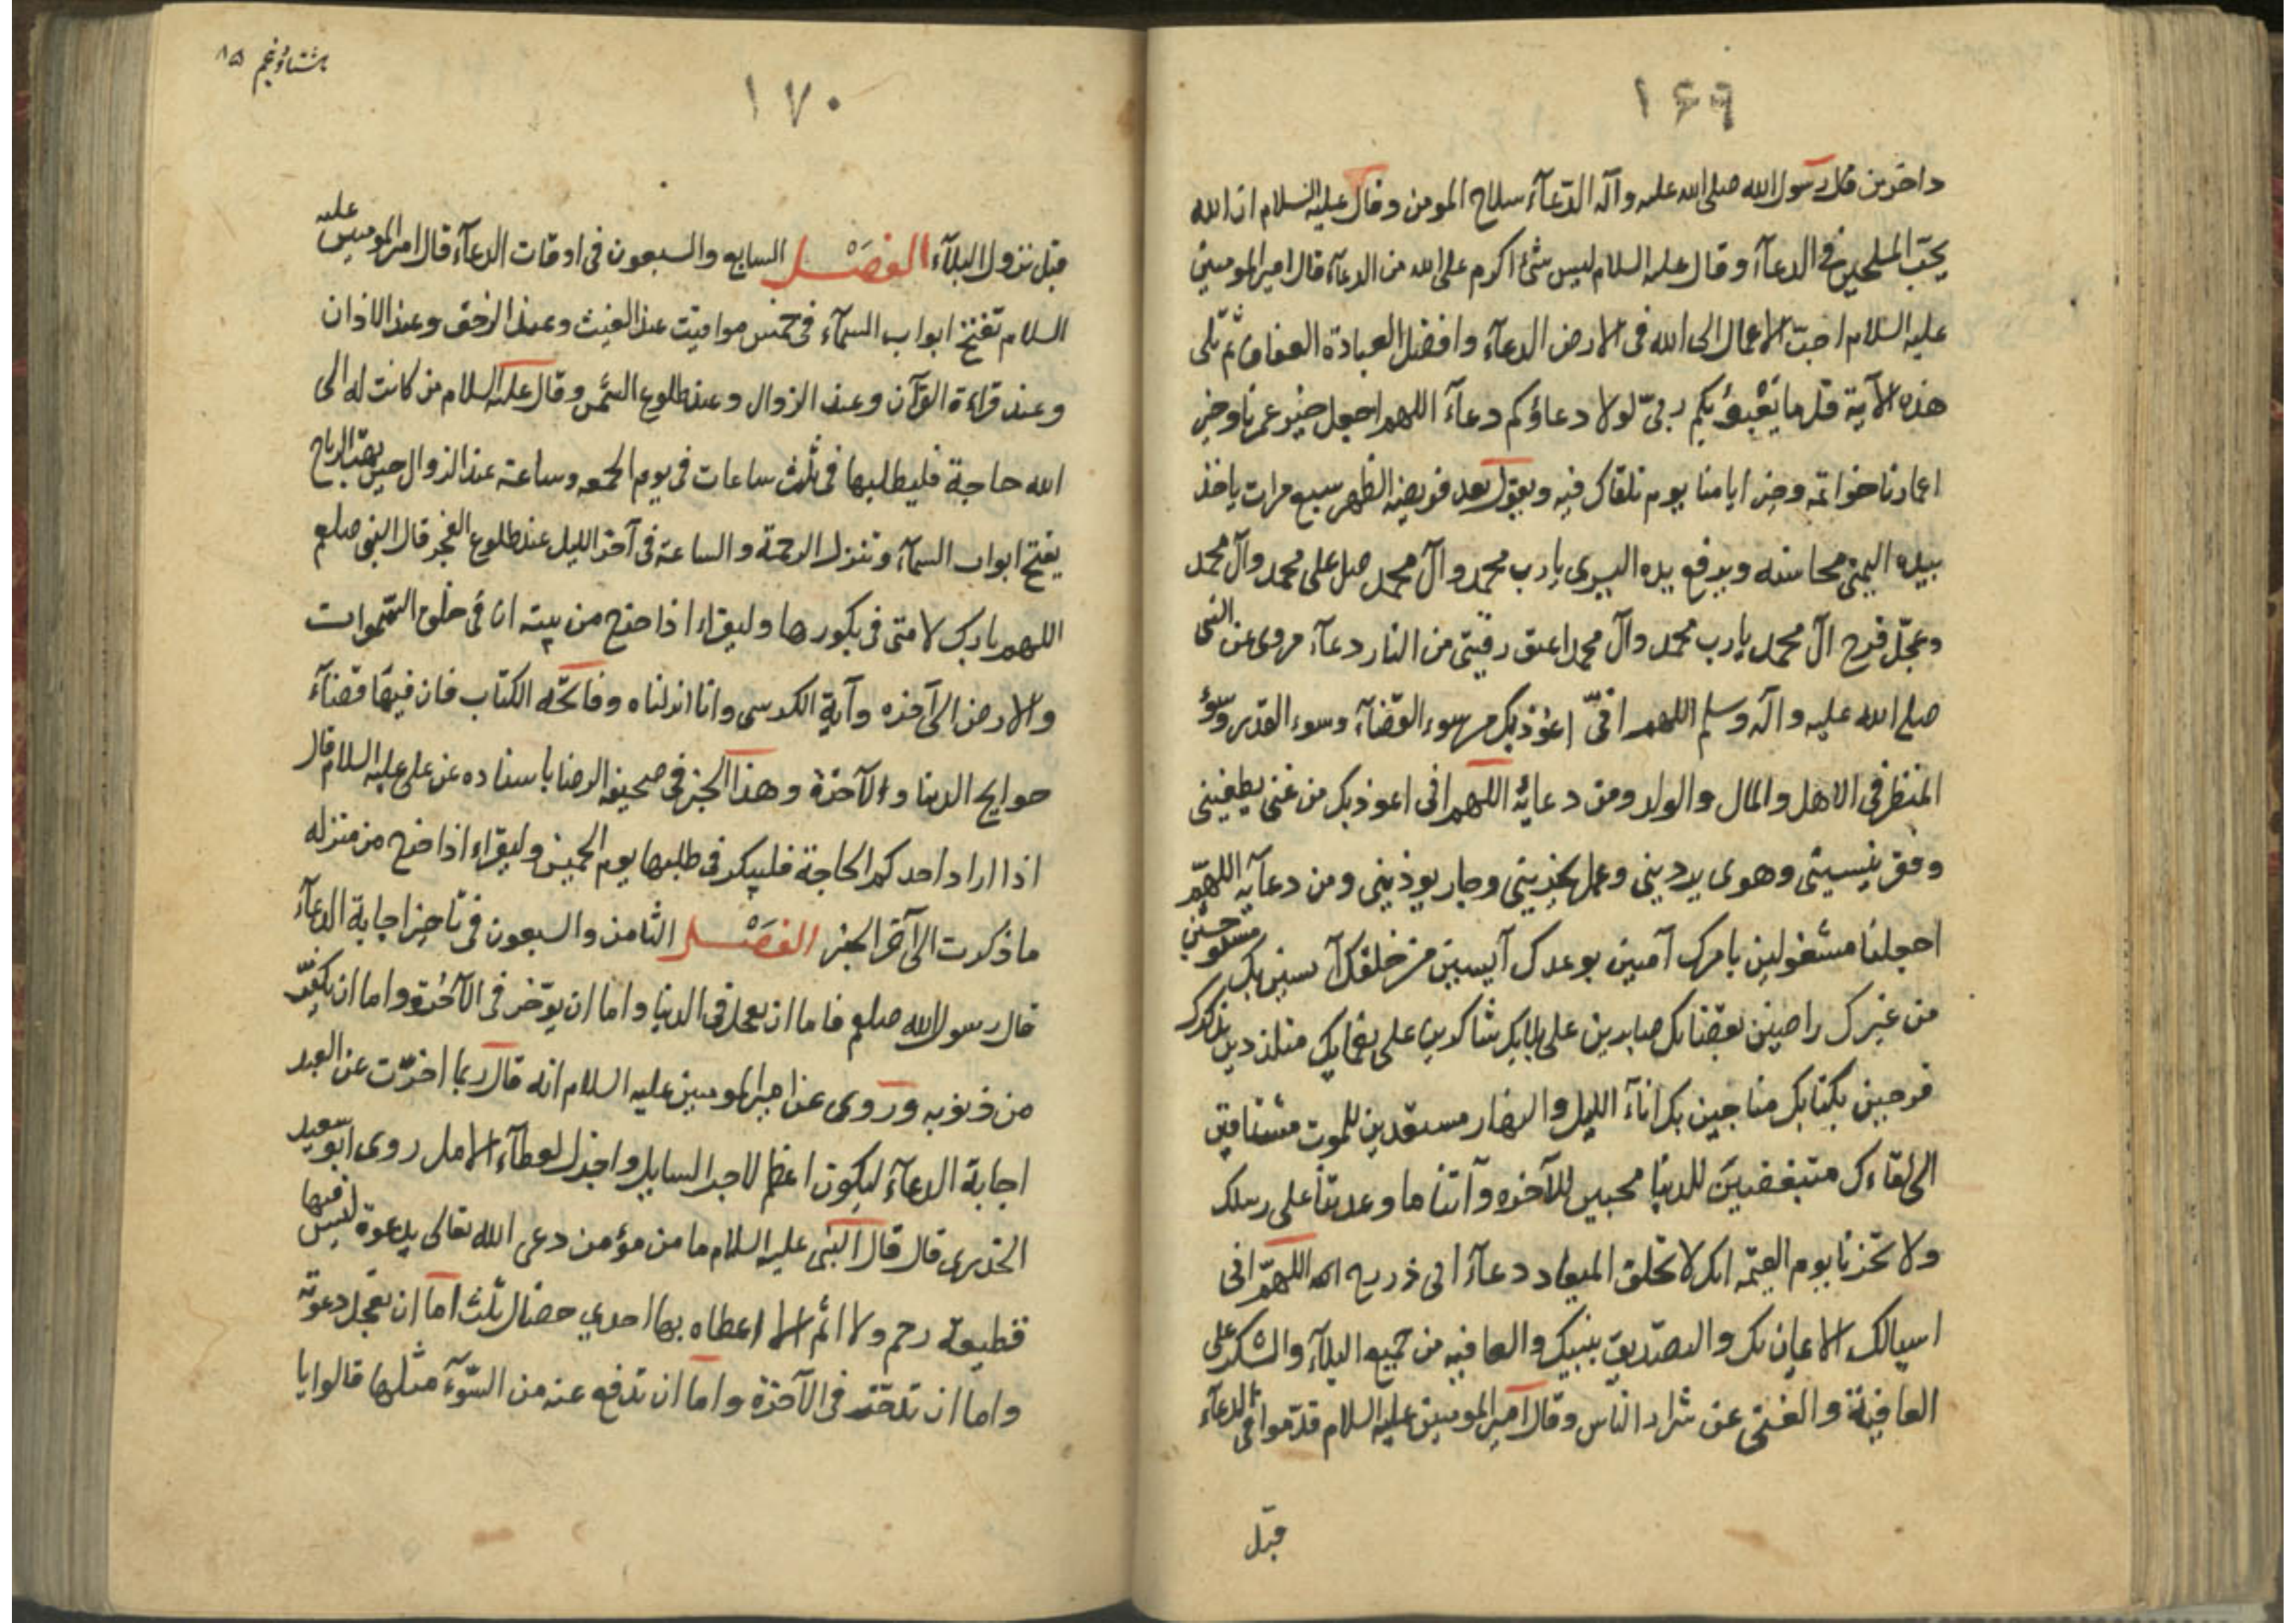 ۱۶۹
داخرين قال رسول الله صلى الله عليه وآله الدّعآء سلاح المومن وقال عليه السلام ان الله
يحبّ الملحين في الدعآء وقال عليه السلام ليس شئ اكرم على الله من الدعآء قال امير المومنين
عليه السلام احبّ الاعمال الى الله فى الارض الدعآء وافضل العبادة العفاف ثم تلى
هذه الآية قل ما يَعْبَؤُ بكم ربىّ لولا دعاؤكم دعآء اللهم اجعل خير عمرنا وخير
اعمارنا خواتمه وخير ايامنا يوم نلقاك فيه ويقول بعد فريضه الظهر سبع مرات ياخذ
بيده اليمنى محاسنه ويرفع يده اليسرى يا رب محمد وآل محمد صل على محمد وآل محمد
وعجّل فرج آل محمد يا رب محمد وآل محمد اعتق رقبتى من النار دعآء مروى عن النبى
صلى الله عليه وآله وسلم اللهم انىّ اعوذ بك من سوء القضآء وسوء القدر وسوء
المنظر فى الاهل والمال والولد ومن دعائه اللهم انى اعوذ بك من غنى يطغينى
وفقر ينسينى وهوى يردينى وعمل يخزينى وجار يوذينى ومن دعآيه اللهمّ
اجعلنا مشغولين بامرك آمنين بوعدك آيسين من خلقك آنسين بك مستوحشين
من غيرك راضين بقضائك صابرين على بلائك شاكرين على نعمايك متلذذين بذكرك
فرحين بكتابك مناجين بك انآء الليل والنهار مستعدين للموت مشتاقين
الى لقاءك متبغضين للدنيا محبين للآخره وآتنا ما وعدتنا على رسلك
ولا تخزنا يوم القيمة انك لا تخلف الميعاد دعآء ابى ذر ره اللهمّ انى
اسيالك الايمان بك والتصديق بنبيك والعافيه من جميع البلآء والشكر على
العافية والغنى عن شرار الناس وقال امير المومنين عليه السلام قدّموا فى الدعآء
قبل
۱۷۰
هشتاد و پنجم ۸۵
قبل نزول البلآء الفصَْل السابع والسبعون فى اوقات الدعآء قال امير المومنين عليه
السلام تفتح ابواب السمآء فى خمس مواقيت عند الغيث وعند الزحف وعند الاذان
وعند قراءة القرآن وعند الزوال وعند طلوع الشمس وقال عليه السلام من كانت له الى
الله حاجة فليطلبها فى ثلث ساعات فى يوم الجمعه وساعة عند الزوال حين تهبّ الرياح
يفتح ابواب السمآء وتنزل الرحمة والساعة فى آخر الليل عند طلوع الفجر قال النبى صلعم
اللهم بارك لامتى فى بكورها وليقراء اذا خرج من بيته ان فى خلق السّموات
والارض الى آخره وآية الكرسى وانا انزلناه وفاتحة الكتاب فان فيها قضآء
حوايج الدنيا والآخرة وهذا الخبر فى صحيفة الرضا باسناده عن على عليه السلام قال
اذا اراد احدكم الحاجة فليبكر فى طلبها يوم الخميس وليقراء اذا خرج من منزله
ما ذكرت الى آخر الخبر الفصَْل الثامن والسبعون فى تاخير اجابة الدعآء
قال رسول الله صلعم فاما ان يعجل فى الدنيا واما ان يوّخر فى الآخرة واما ان يكفّر
من ذنوبه وروى عن امير المومنين عليه السلام انه قال ربما اخرّت عن العبد
اجابة الدعآء ليكون اعظم لاجر السايل واجزل لعطآء الامل روى ابو سعيد
الخدرى قال قال النبى عليه السلام ما من مؤمن دعى الله تعالى بدعوة ليس فيها
قطيعة رحم ولا اثم الا اعطاه بها احدي خصال ثلث اما ان يعجل دعوته
واما ان تدخر فى الآخرة واما ان تدفع عنه من السّوء مثلها قالوا يا